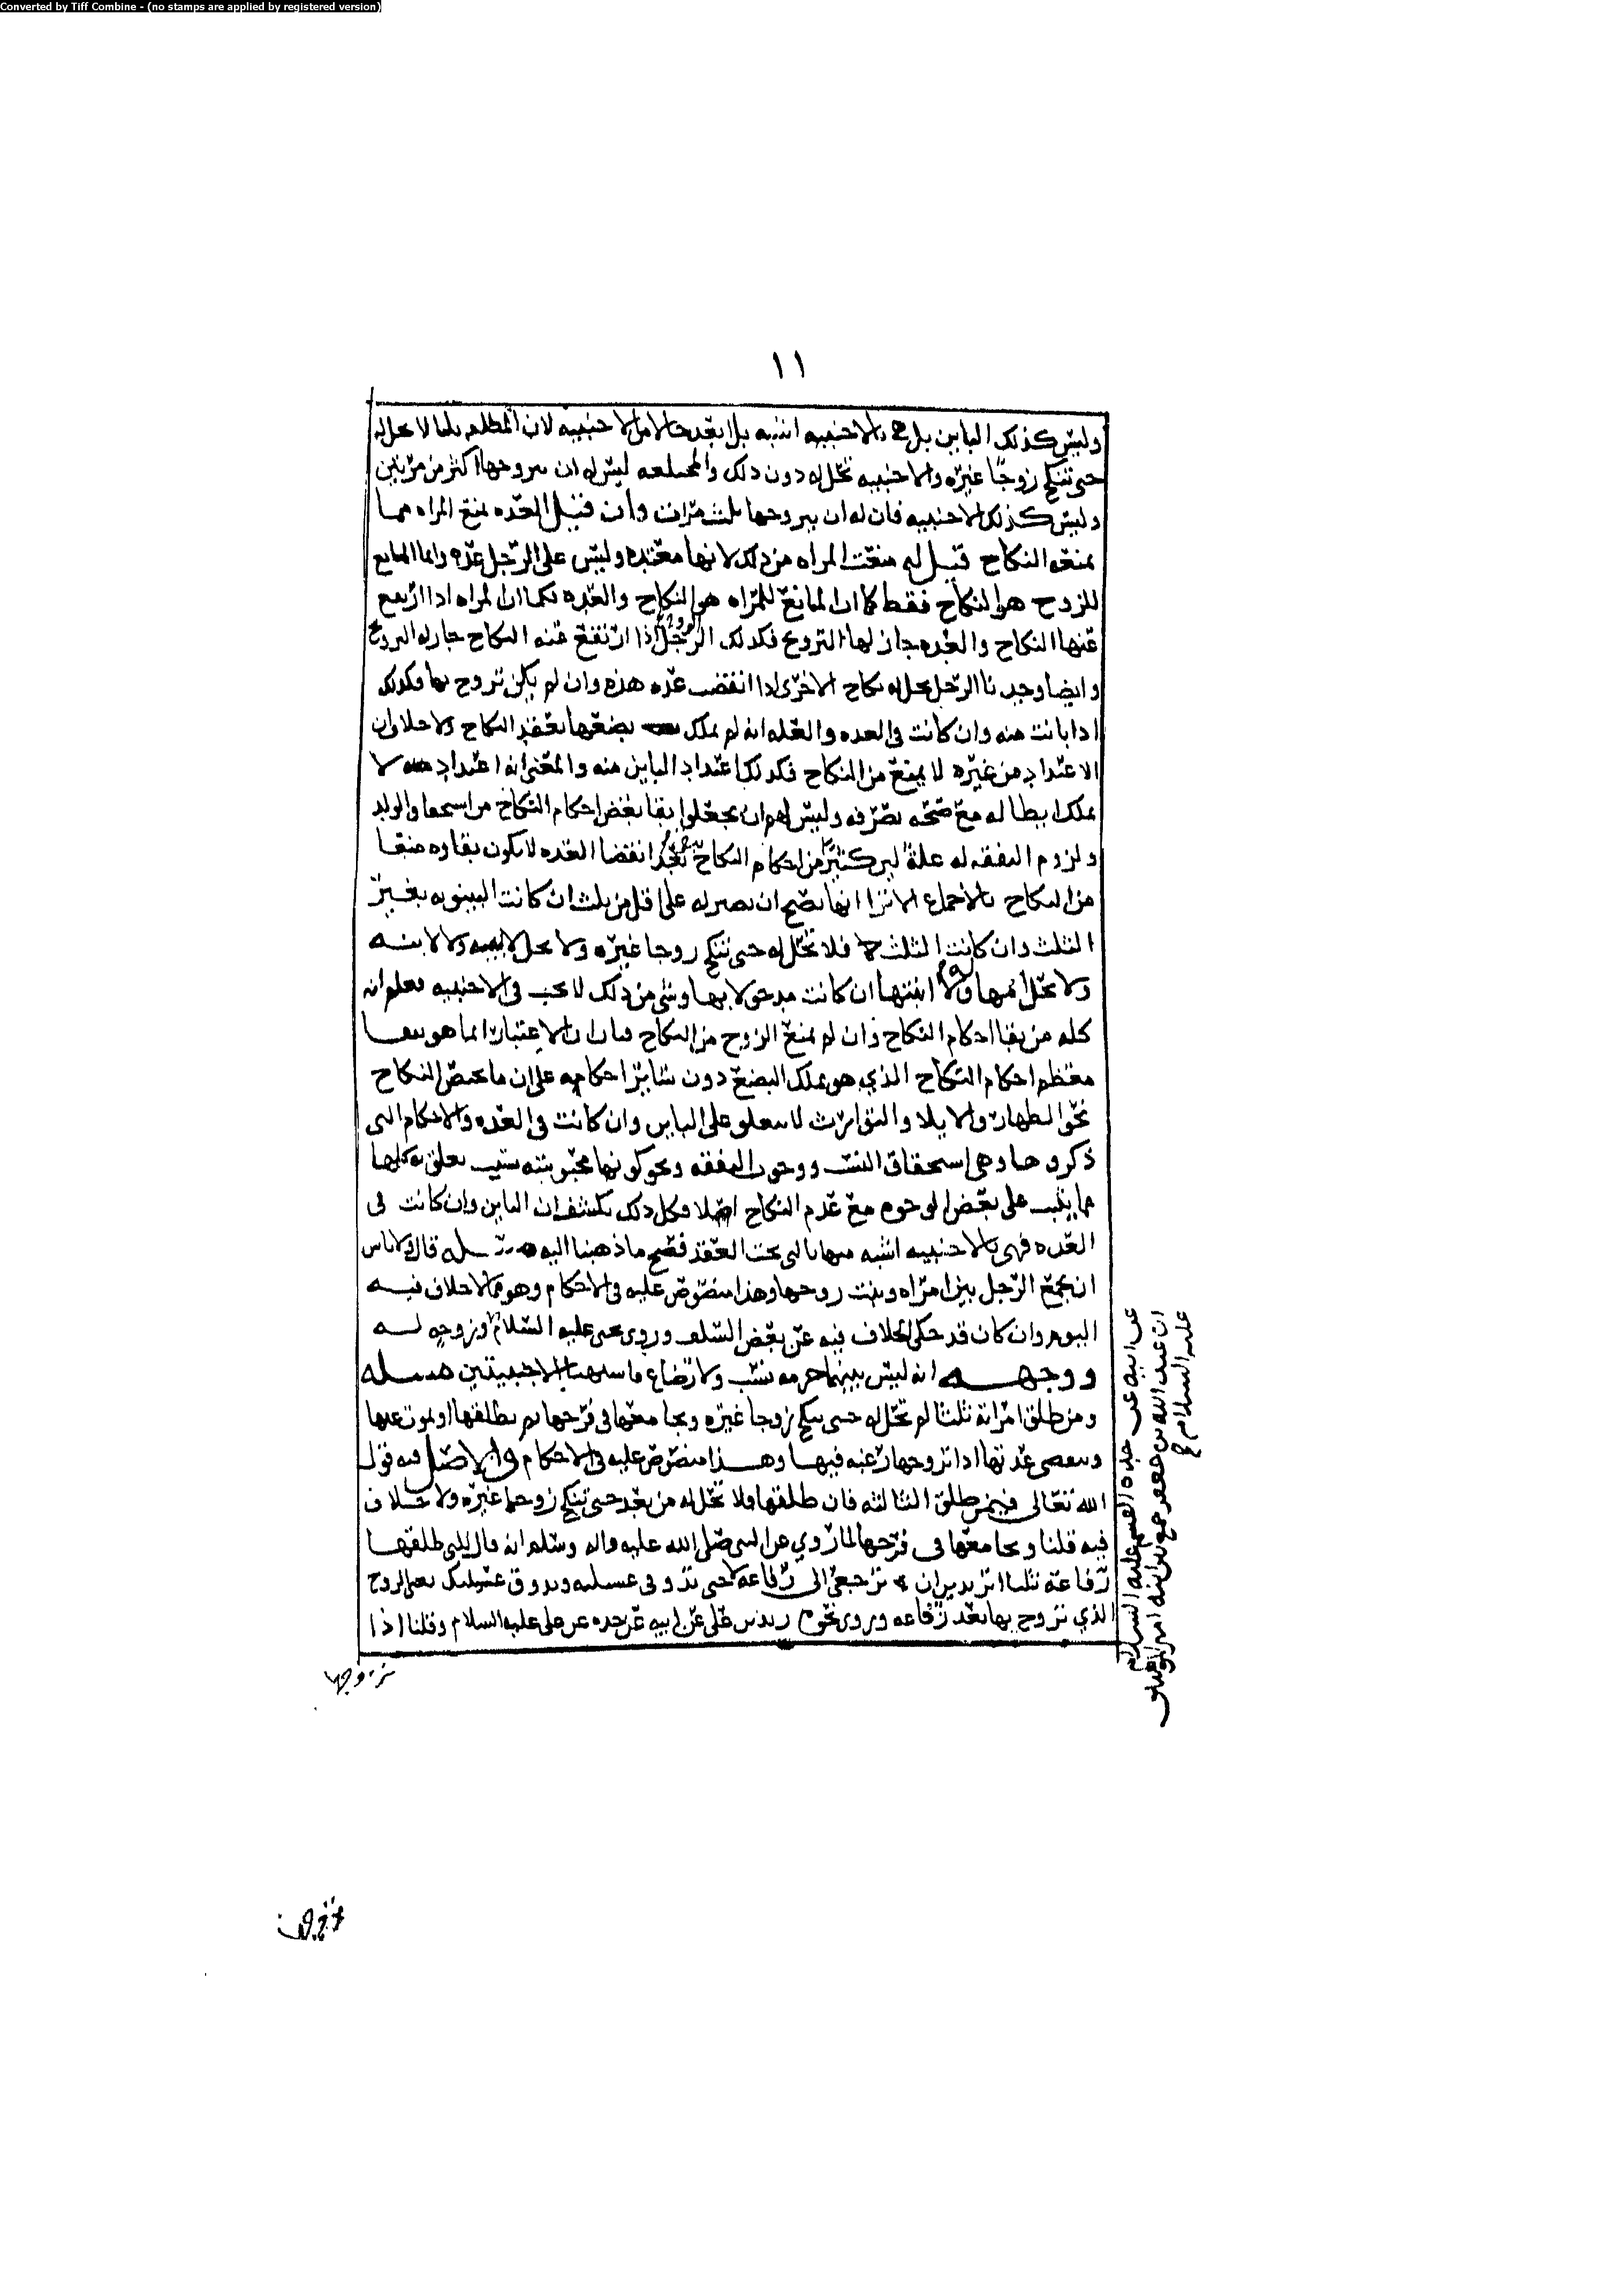 Converted by Tiff Combine - (no stamps are applied by registered version)
١١
وليس كذلك الباين بل هي بالاجنبيه اشبه بل ابعد حالا من الاجنبيه لان المطلقه ثلثا لا تحل له
حتى تنكح زوجا غيره والاجنبيه تحل له دون ذلك والمختلعه ليس له ان يتزوجها اكثر من مرتين
وليس كذلك الاجنبيه فان له ان يتزوجها ثلث مرات وان قيل العده تمنع المراه مما
يمنعه النكاح قيل له منعت المراه من ذلك لانها معتده وليس على الرجل عده وانما المانع
للزوج هو النكاح فقط كما ان المانع للمراه هو النكاح والعده فكما ان المراه اذا ارتفع
عنها النكاح والعده جاز لها التزوج فكذلك الرجل اذا ارتفع عنه النكاح جاز له التزوج
وايضا وجدنا الرجل يحل له نكاح الاخرى اذا انقضت عده هذه وان لم يكن تزوج بها فكذلك
اذا بانت منه وان كانت في العده والعله انه لم يملك بضعها بعقد النكاح ولا خلاف ان
الاعتداد من غيره لا يمنع من النكاح فكذلك اعتداد الباين منه والمعنى انه اعتداد لا
يملك ابطاله مع صحه تصرفه وليس لهم ان يجعلوا بقا بعض احكام النكاح من استحقاق الولد
ولزوم النفقه له عله لان كثيرا من احكام النكاح بعد انقضا العده لا يكون بقاوه منعا
من النكاح بالاجماع الا ترا انها تصح ان تصير له على اقل من ثلث ان كانت البينونه بغير
الثلث وان كانت الثلث فلا تحل له حتى تنكح زوجا غيره ولا تحل لابيه ولا لابنه
ولا تحل امها ولا ابنتها ان كانت مدخولا بها وشي من ذلك لا يجب في الاجنبيه فعلم انه
كله من بقا احكام النكاح وان لم يمنع الزوج من النكاح فبان ان الاعتبار انما هو ببقا
معظم احكام النكاح الذي هو يملك البضع دون ساير احكامه على ان ما يختص النكاح
نحو الظهار والايلا والتوارث لا يتعلق على الباين وان كانت في العده والاحكام التي
ذكروها وهي استحقاق النسب ووجوب النفقه ونحو كونها محبوسه بسبب يتعلق به كلها
مما يثبت على بعض الوجوه مع عدم النكاح اصلا وكل ذلك يكشف ان الباين وان كانت في
العده فهي بالاجنبيه اشبه منها بالتي تحت العقد فصح ما ذهبنا اليه مسله قال ولا باس
ان يجمع الرجل بين امراه وبنت زوجها وهذا منصوص عليه في الاحكام وهو مما لا خلاف فيه
اليوم وان كان قد حكى الخلاف فيه عن بعض السلف وروى يحيى عليه السلام وزوجه له
ووجهه انه ليس بينهما حرمه نسب ولا رضاع فاشبهتا الاجنبيتين مسله
ومن طلق امراته ثلثا لم تحل له حتى تنكح زوجا غيره ويجامعها في فرجها ثم يطلقها او يموت عنها
وتنقضي عدتها اذا تزوجها رغبه فيها وهذا منصوص عليه في الاحكام والاصل فيه قول
الله تعالى فيمن طلق الثالثه فان طلقها فلا تحل له من بعد حتى تنكح زوجا غيره ولا خلاف
فيه قلنا ويجامعها في فرجها لما روي عن النبي صلى الله عليه واله وسلم انه قال للتي طلقها
رفاعه ثلثا اتريدين ان ترجعي الى رفاعه لا حتى تذوقي عسيلته ويذوق عسيلتك يعني الزوج
الذي تزوج بها بعد رفاعه وروى نحوه زيد بن علي عن ابيه عن جده عن علي عليه السلام وقلنا اذا
تزوجها
عن ابيه عن جده القسم عليه السلام
ان عبد الله بن جعفر جمع بين ابنة امير المؤمنين
عليه السلام